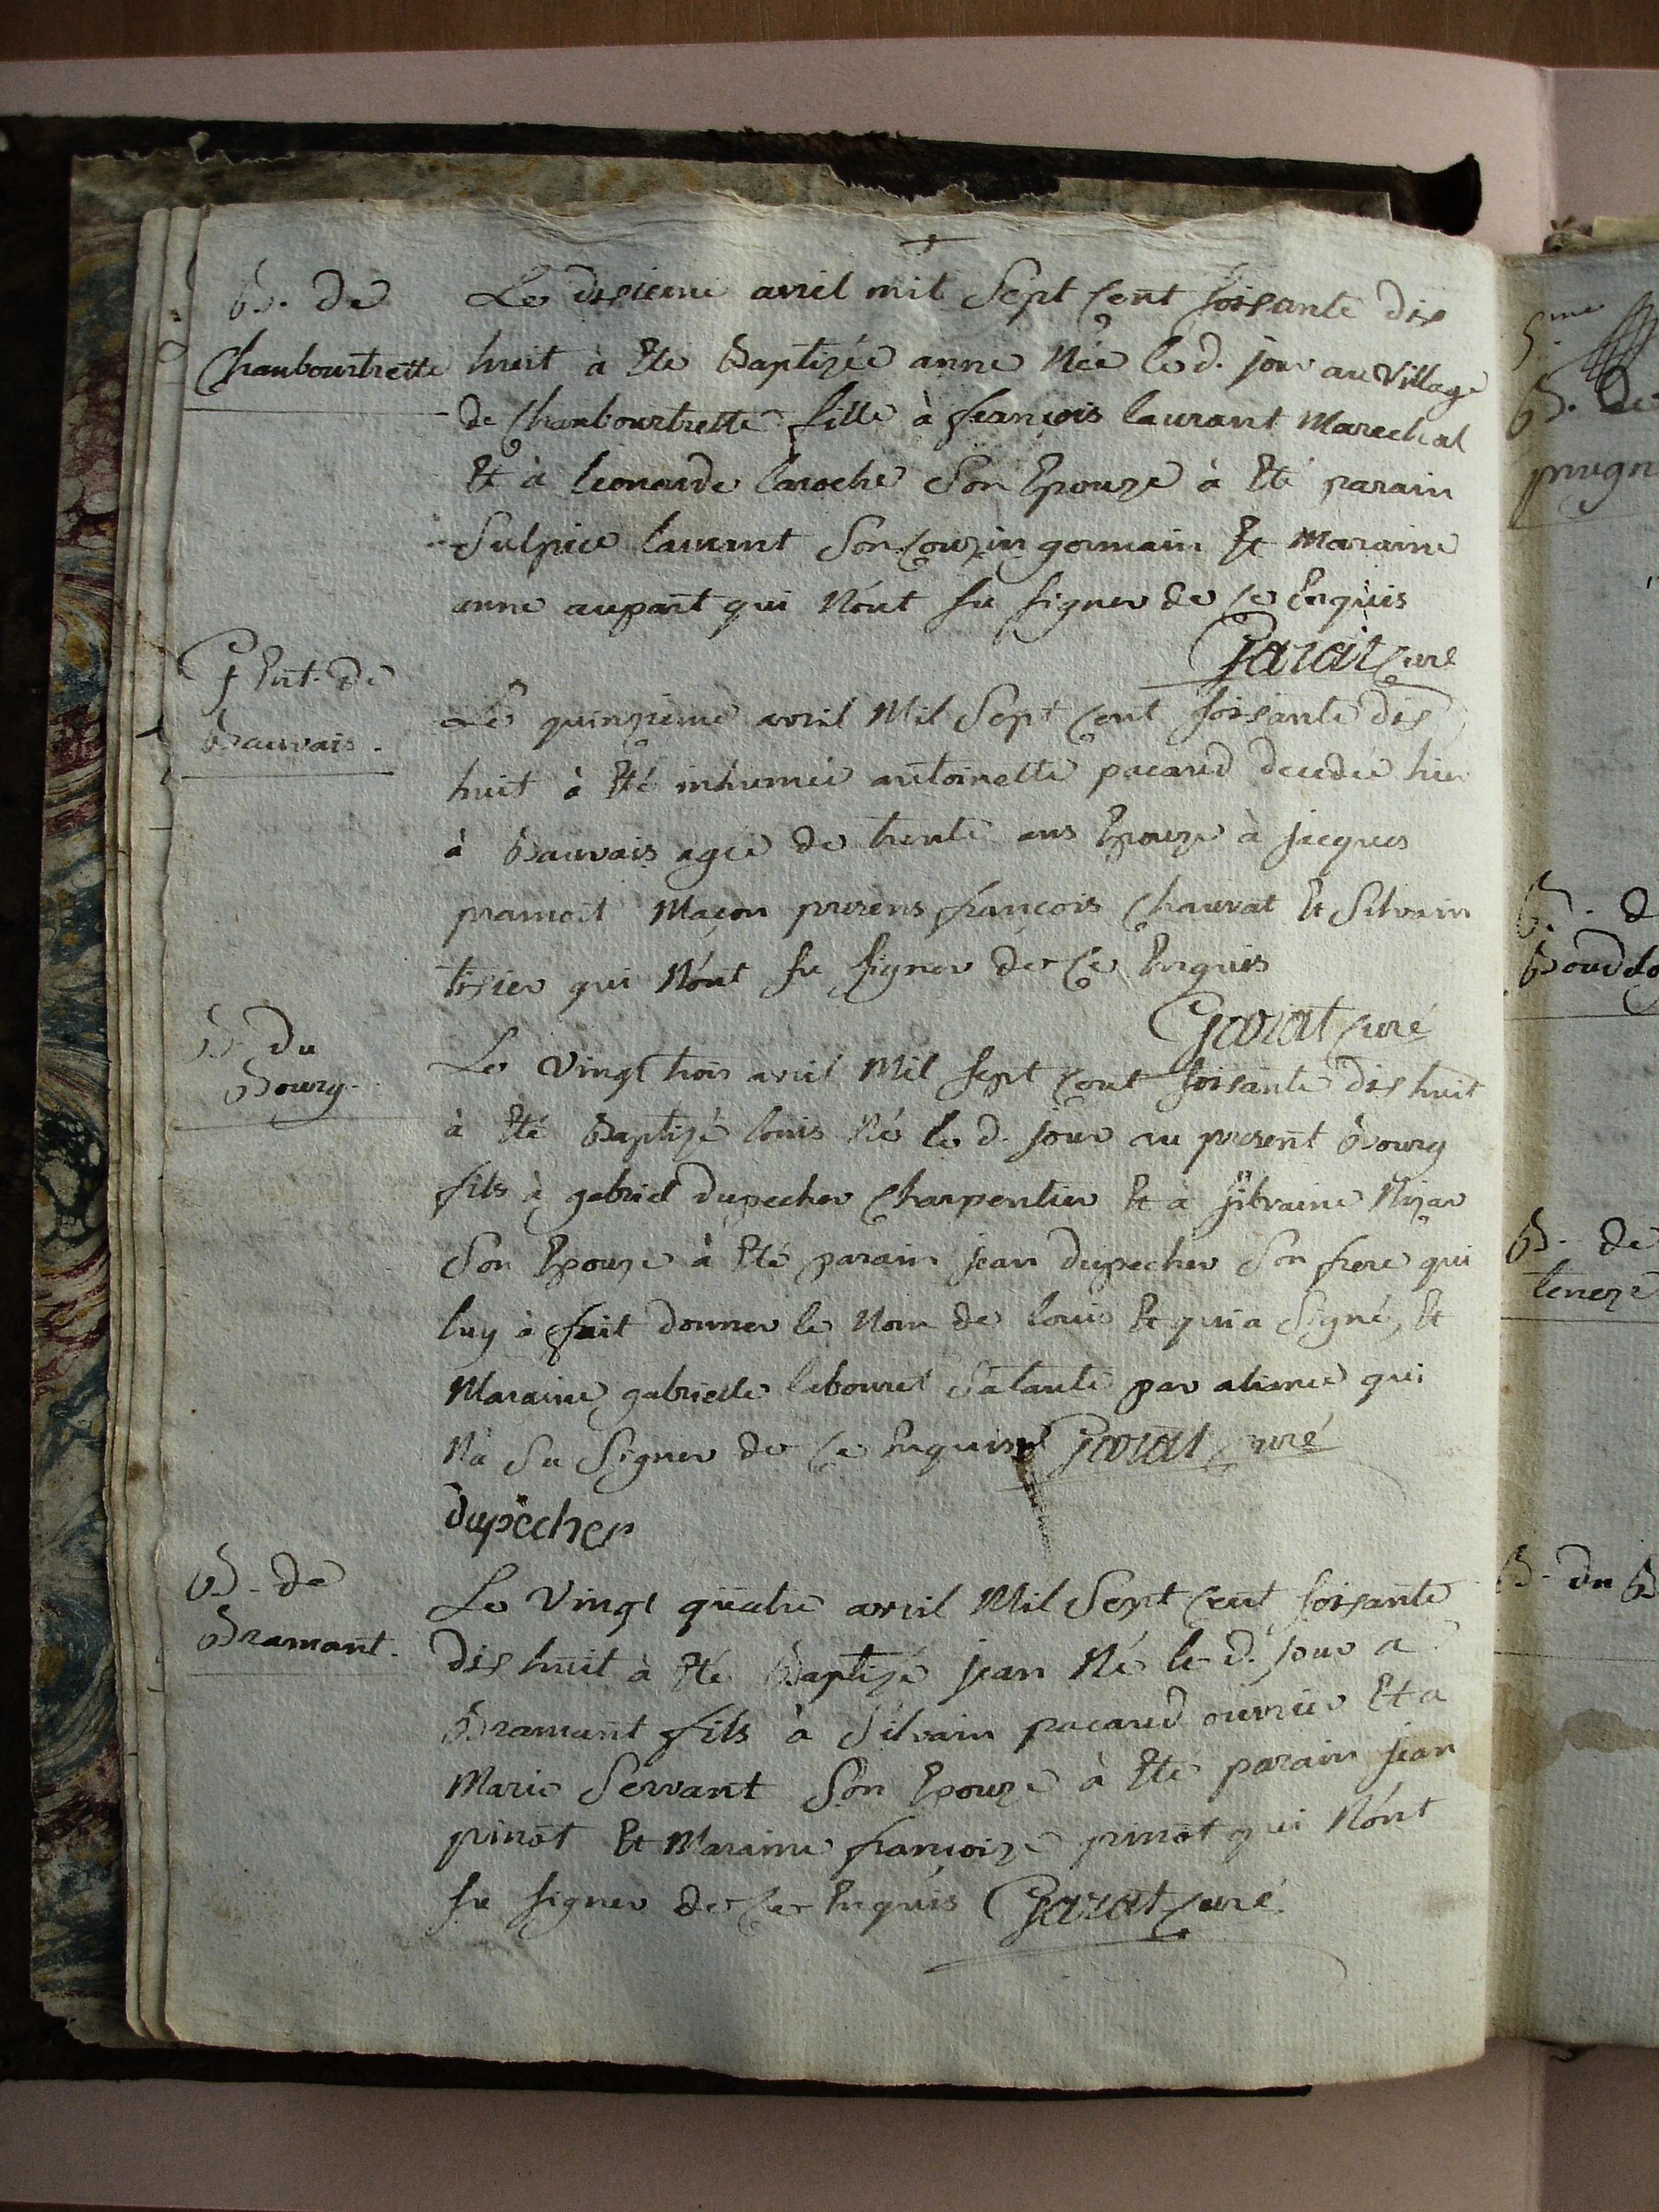 B. de
Chambourtrette
Le disieme avril mil Sept Cent soisante dis
huit à Eté Baptizée anne Née le d. jour au village
de Chambourtrette fille à françois laurant Marechal
Et à leonarde laroche Son Epouze à Eté parain
Sulpice laurant Son Couzin germain Et Maraine
anne aupant qui N'ont su signer de Ce Enquis
Garat Curé
Ent. de
Bauvais.
Le quinzieme avril Mil Sept Cent soisante dis
huit à Eté inhumée antoinette pacaud decedée hier
à Bauvais agée de trente ans Epouze à jacques
pramoit Maçon presens françois Chauvat Et Silvain
tisier qui N'ont su signer de Ce Enquis
Garat Curé
B. du
Bourg.
Le Vingt trois avril Mil sept Cent soisante dis huit
à Eté Baptizé louis Né le d. jour au present Bourg
fils à gabriel dupecher Charpentier Et à silvaine Nizar
Son Epouze à Eté parain jean dupecher Son frere qui
luy à fait donner le Nom de louis Et qui a Signé, Et
Maraine gabrielle labouret Sa tante par aliance qui
N'a Su Signer de Ce Enquise Garat Curé
dupecher
B. de
Bramant.
Le Vingt quatre avril Mil Sept Cent soisante
dis huit à Eté Baptizé jean Né le d. jour a
Bramant fils à Silvain pacaud ouvrier Et a
Marie Servant Son Epouze à Eté parain jean
pinot Et Maraine françoize pinot qui N'ont
su signer de Ce Enquis Garat Curé
5.me
B. de
B. de
B. de
B. du B